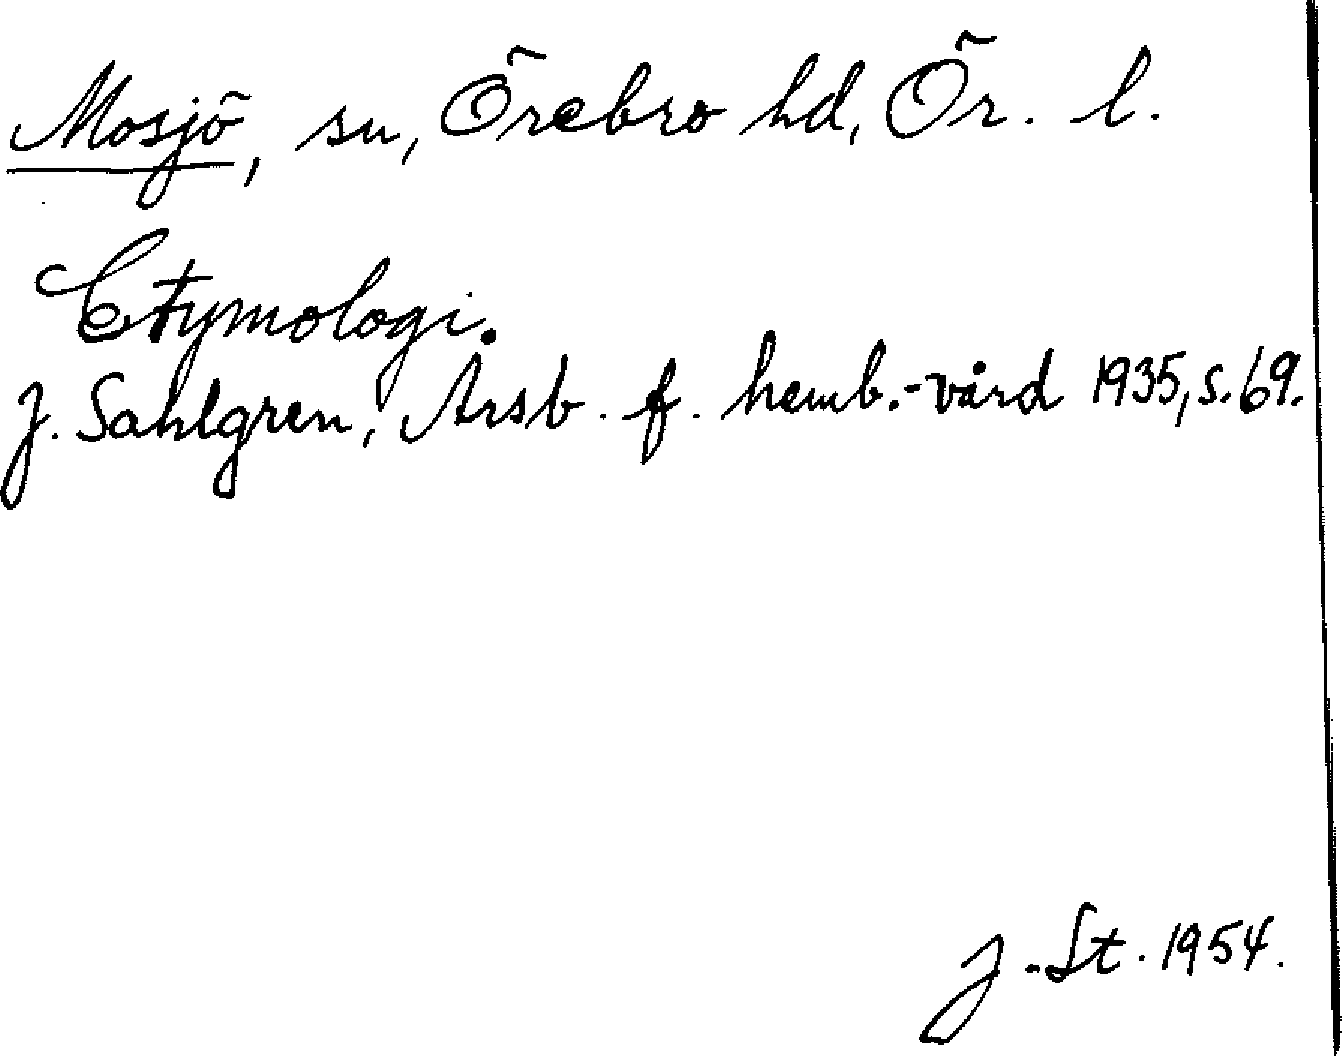 Mosjö, sn, Örebro hd, Ör. l.
Etymologi.
J. Sahlgren, Årsb. f. hemb.-vård 1935, s. 69.
J. St. 1954.